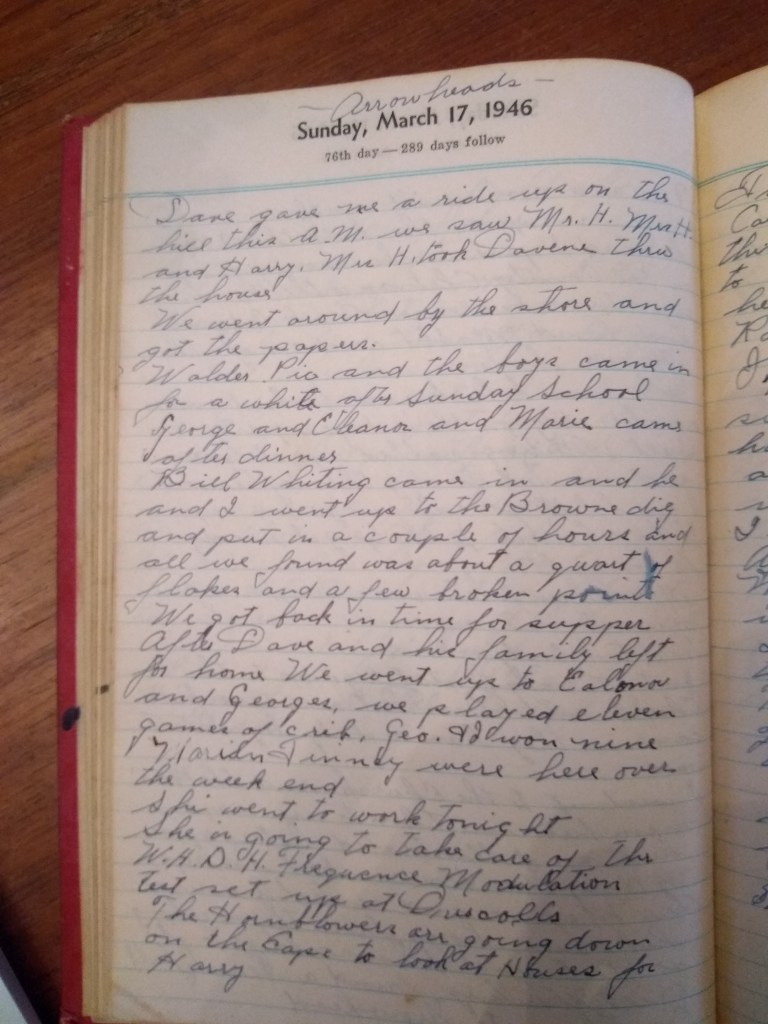 — Arrowheads —
Sunday, March 17, 1946
76th day — 289 days follow
Dave gave me a ride up on the
hill this A.M. we saw Mr. H. Mrs H.
and Harry. Mrs H. took Davene thru
the house
We went around by the shore and
got the papers.
Walder, Pic and the boys came in
for a while after Sunday School
George and Eleanor and Marie came
after dinner
Bill Whiting came in and he
and I went up to the Browne dig
and put in a couple of hours and
all we found was about a quart of
flakes and a few broken points
We got back in time for supper
After Dave and his family left
for home We went up to Ealonor
and Georges, we played eleven
games of crib, Geo. & I won nine
Marian were here over
the week end
She went to work tonight
She is going to take care of the
W.H.D.H. Frequence Modulation
test set up at Driscolls
The Hornblowers are going down
on the Cape to look at Houses for
Harry